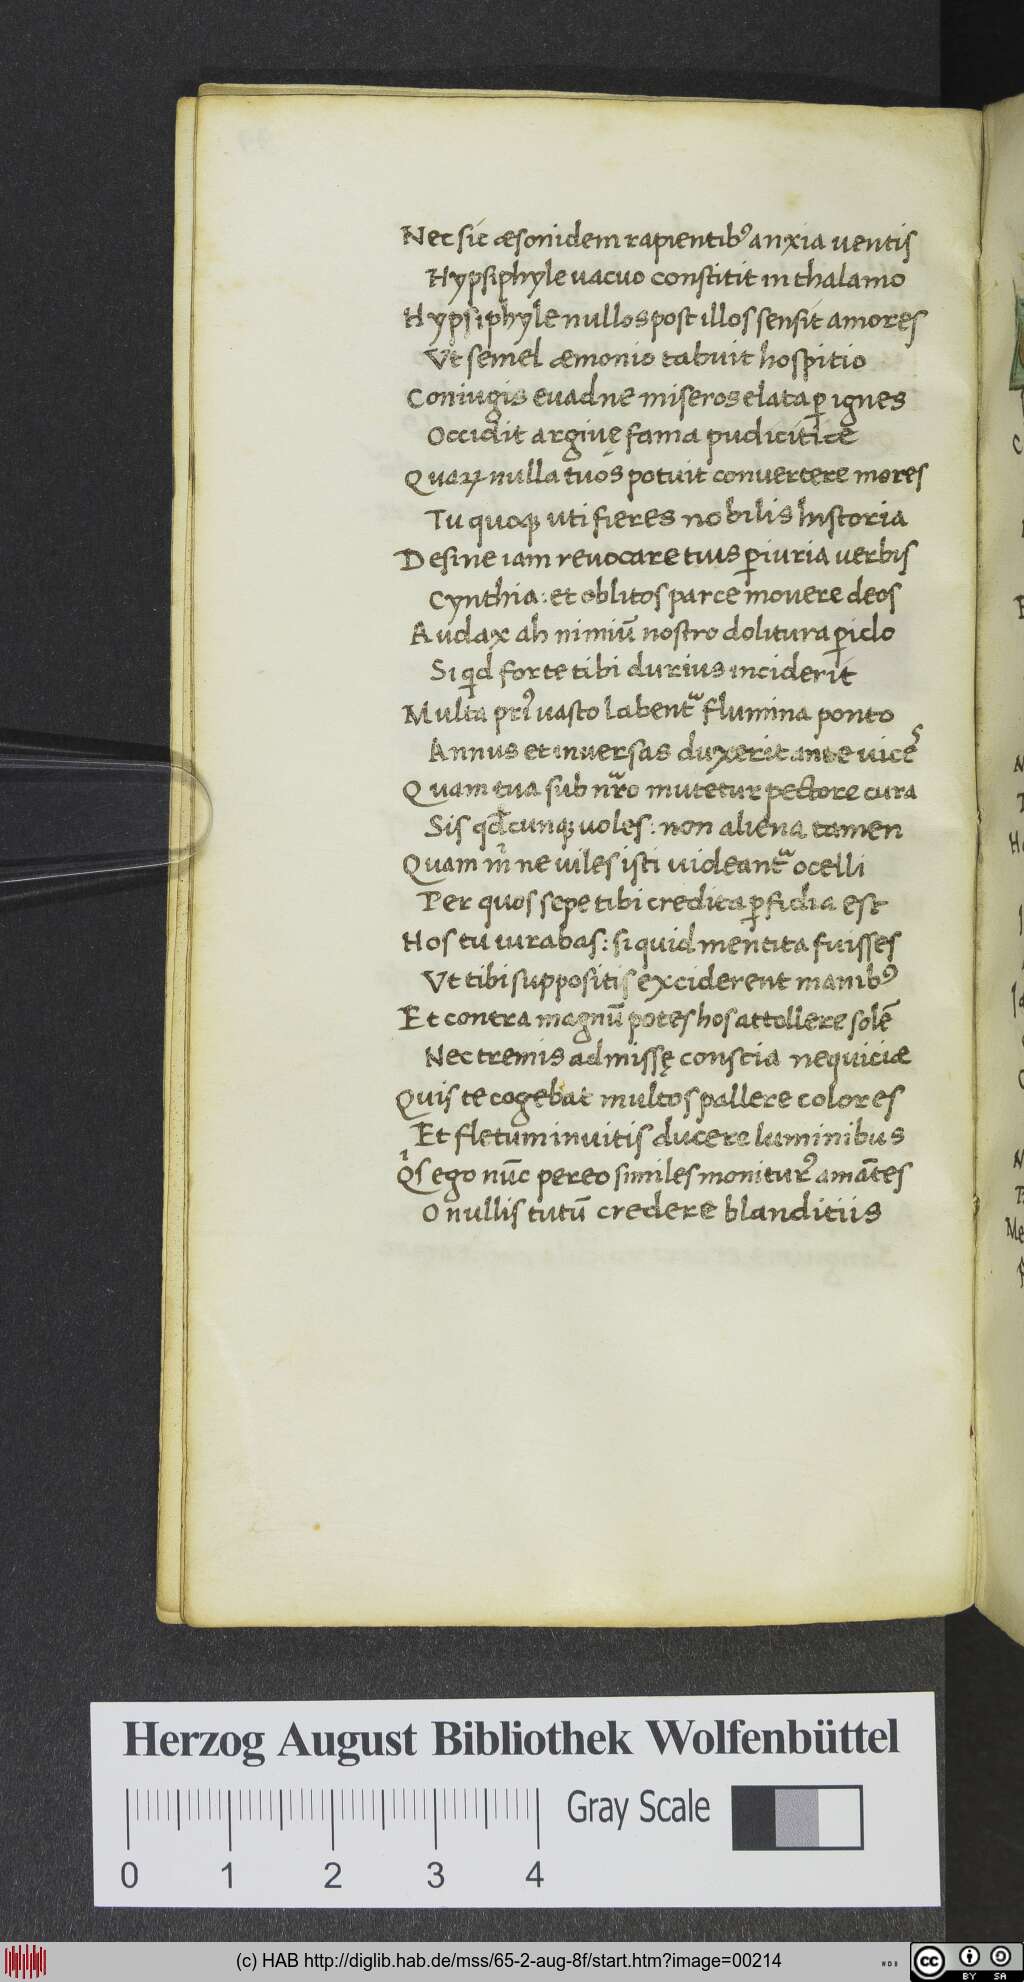 Nec sic æsonidem rapientibꝰ anxia uentis
Hypsiphyle uacuo constitit in thalamo
Hypsiphyle nullos post illos sensit amores
Vt semel æmonio tabuit hospitio
Coniugis euadne miseros elata ꝑ ignes
Occidit argiuę fama pudicitiæ
Quaꝝ nulla tuos potuit conuertere mores
Tu quoqꝫ uti fieres nobilis historia
Desine iam reuocare tuis ꝑiuria uerbis
Cynthia: et oblitos parce mouere deos
Audax ah nimiū nostro dolitura ꝑiclo
Si qͥd forte tibi durius inciderit
Multa priꝰ uasto labentᷓ flumina ponto
Annus et inuersas duxerit ante uices
Quam tua sub nr̃o mutetur pectore cura
Sis qd̄cunqꝫ uoles: non aliena tamen
Quam mͥ ne uiles isti uideantᷓ ocelli
Per quos sepe tibi credita ꝑfidia est
Hos tu iurabas: si quid mentita fuisses
Vt tibi suppositis exciderent manibꝰ
Et contra magnū potes hos attollere solē
Nec tremis admissę conscia nequiciæ
Quis te cogebat multos pallere colores
Et fletum inuitis ducere luminibus
Qͥs ego nūc pereo similes moniturꝰ amātes
O nullis tutū credere blanditiis
Herzog August Bibliothek Wolfenbüttel
Gray Scale
0 1 2 3 4
(c) HAB http://diglib.hab.de/mss/65-2-aug-8f/start.htm?image=00214
cc BY SA